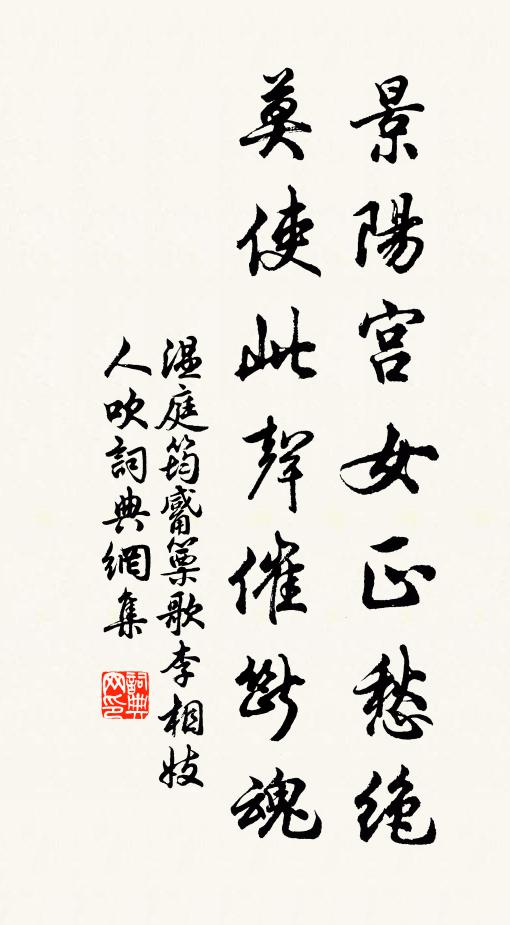 景陽宮女正愁絕
莫使此聲催斷魂
溫庭筠觱篥歌李相妓
人吹詞典網集
詞典網印